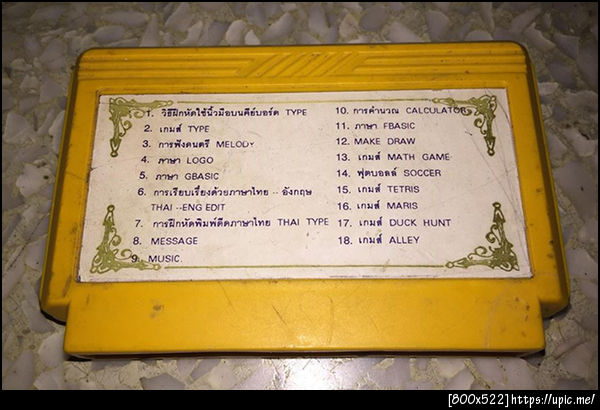 1. วิธีฝึกหัดใช้นิ้วมือบนคีย์บอร์ด TYPE
2. เกมส์ TYPE
3. การฟังดนตรี MELODY
4. ภาษา LOGO
5. ภาษา GBASIC
6. การเรียบเรื่องด้วยภาษาไทย -- อังกฤษ
THAI --ENG EDIT
7. การฝึกหัดพิมพ์ดีดภาษาไทย THAI TYPE
8. MESSAGE
9. MUSIC.
10. การคำนวณ CALCULATOR
11. ภาษา FBASIC
12. MAKE DRAW
13. เกมส์ MATH GAME
14. ฟุตบอลล์ SOCCER
15. เกมส์ TETRIS
16. เกมส์ MARIS
17. เกมส์ DUCK HUNT
18. เกมส์ ALLEY
[800x522]https://upic.me/